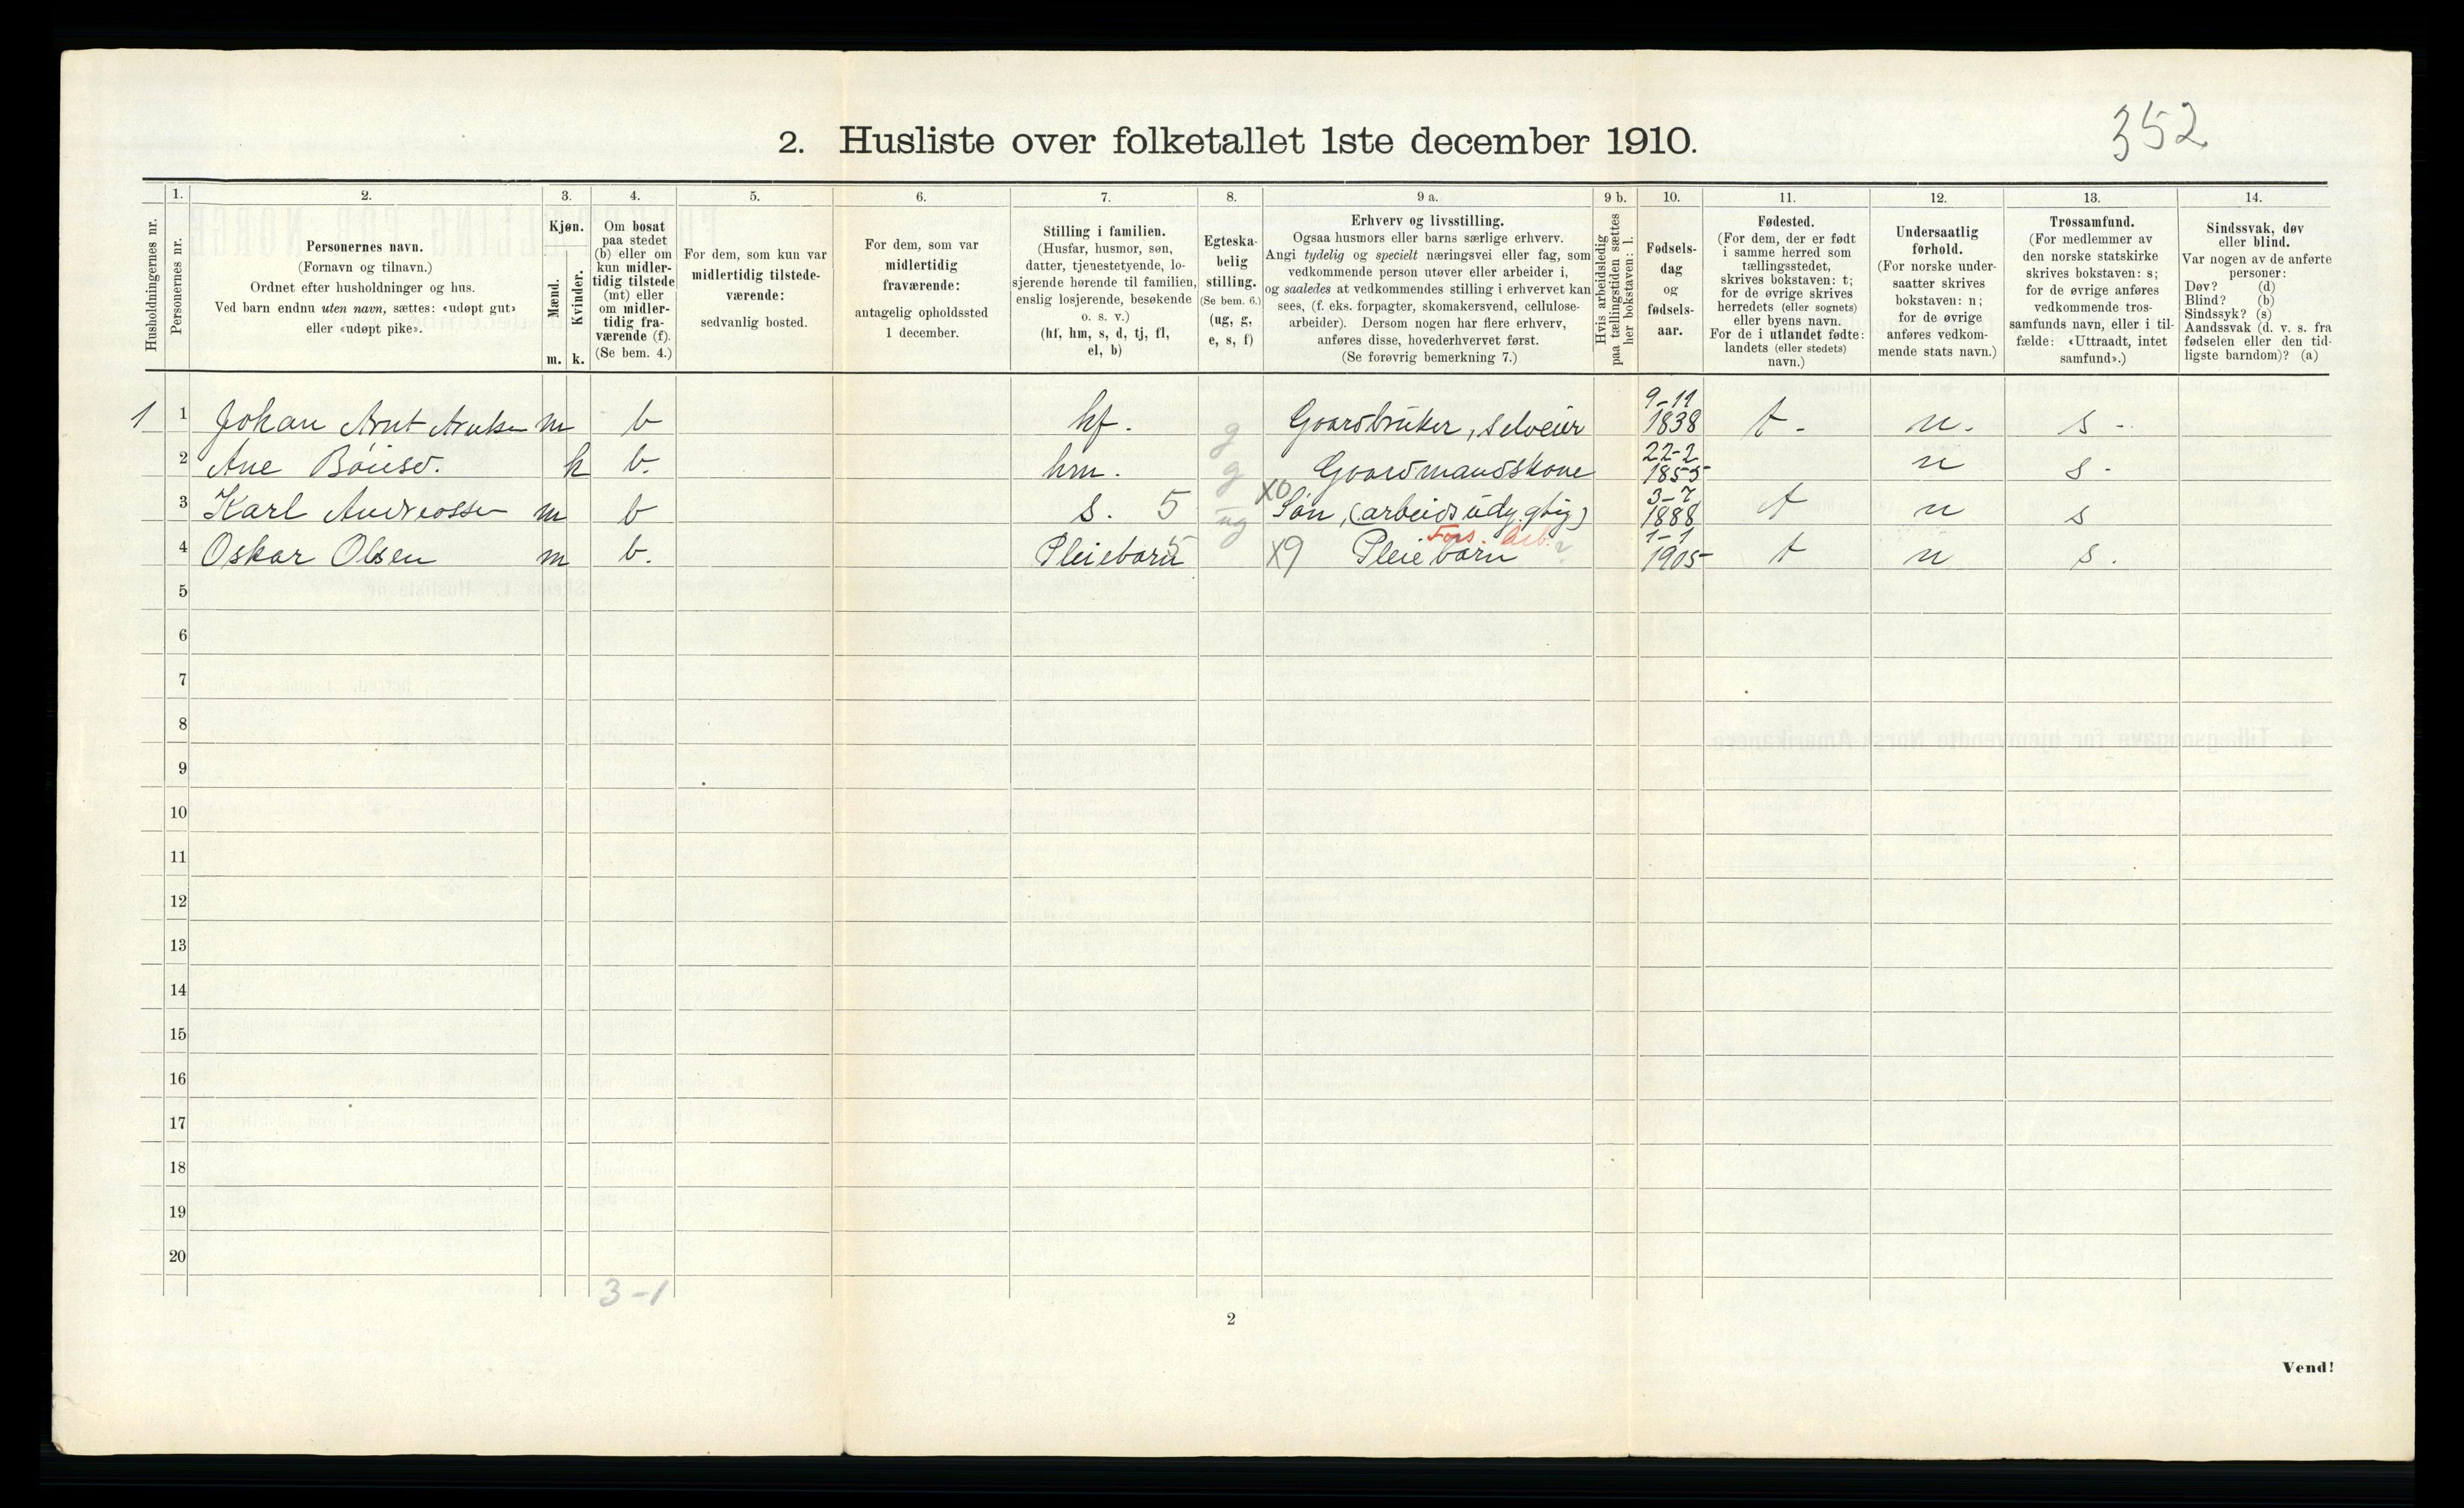 352
2. Husliste over folketallet 1ste december 1910.
Husholdningernes nr.
1.
Personernes nr.
2.
Personernes navn.
(Fornavn og tilnavn.)
Ordnet efter husholdninger og hus.
Ved barn endnu uten navn, sættes: «udøpt gut»
eller «udøpt pike».
3.
Kjøn.
Mænd.
Kvinder.
m. k.
4.
Om bosat
paa stedet
(b) eller om
kun midler-
tidig tilstede
(mt) eller
om midler-
tidig fra-
værende (f).
(Se bem. 4.)
5.
For dem, som kun var
midlertidig tilstede-
værende:
sedvanlig bosted.
6.
For dem, som var
midlertidig
fraværende:
antagelig opholdssted
1 december.
7.
Stilling i familien.
(Husfar, husmor, søn,
datter, tjenestetyende, lo-
sjerende hørende til familien,
enslig losjerende, besøkende
o. s. v.)
(hf, hm, s, d, tj, fl,
el, b)
8.
Egteska-
belig
stilling.
(Se bem. 6.)
(ug, g,
e, s, f)
9 a.
Erhverv og livsstilling.
Ogsaa husmors eller barns særlige erhverv.
Angi tydelig og specielt næringsvei eller fag, som
vedkommende person utøver eller arbeider i,
og saaledes at vedkommendes stilling i erhvervet kan
sees, (f. eks. forpagter, skomakersvend, cellulose-
arbeider). Dersom nogen har flere erhverv,
anføres disse, hovederhvervet først.
(Se forøvrig bemerkning 7.)
9 b.
Hvis arbeidsledig
paa tællingstiden sættes
her bokstaven: l.
10.
Fødsels-
dag
og
fødsels-
aar.
11.
Fødested.
(For dem, der er født
i samme herred som
tællingsstedet,
skrives bokstaven: t;
for de øvrige skrives
herredets (eller sognets)
eller byens navn.
For de i utlandet fødte:
landets (eller stedets)
navn.)
12.
Undersaatlig
forhold.
(For norske under-
saatter skrives
bokstaven: n;
for de øvrige
anføres vedkom-
mende stats navn.)
13.
Trossamfund.
(For medlemmer av
den norske statskirke
skrives bokstaven: s;
for de øvrige anføres
vedkommende tros-
samfunds navn, eller i til-
fælde: «Uttraadt, intet
samfund».)
14.
Sindssvak, døv
eller blind.
Var nogen av de anførte
personer:
Døv? (d)
Blind? (b)
Sindssyk? (s)
Aandssvak (d. v. s. fra
fødselen eller den tid-
ligste barndom)? (a)
1 1 Johan Arnt m b hf. g Gaardbruker, selveier 9-11 1838 t. n. s.
2 Ane k b. hm. g Gaardmandskone 22-2 1855 n s.
3 Karl Andreassen m b s. 5 ug X0 Søn, 3-7 1888 t n s
4 Oskar Olsen m b. Pleiebarn 5 X9 Pleiebarn Fors. 1-1 1905 t n s.
5
6
7
8
9
10
11
12
13
14
15
16
17
18
19
20
3-1
2
Vend!